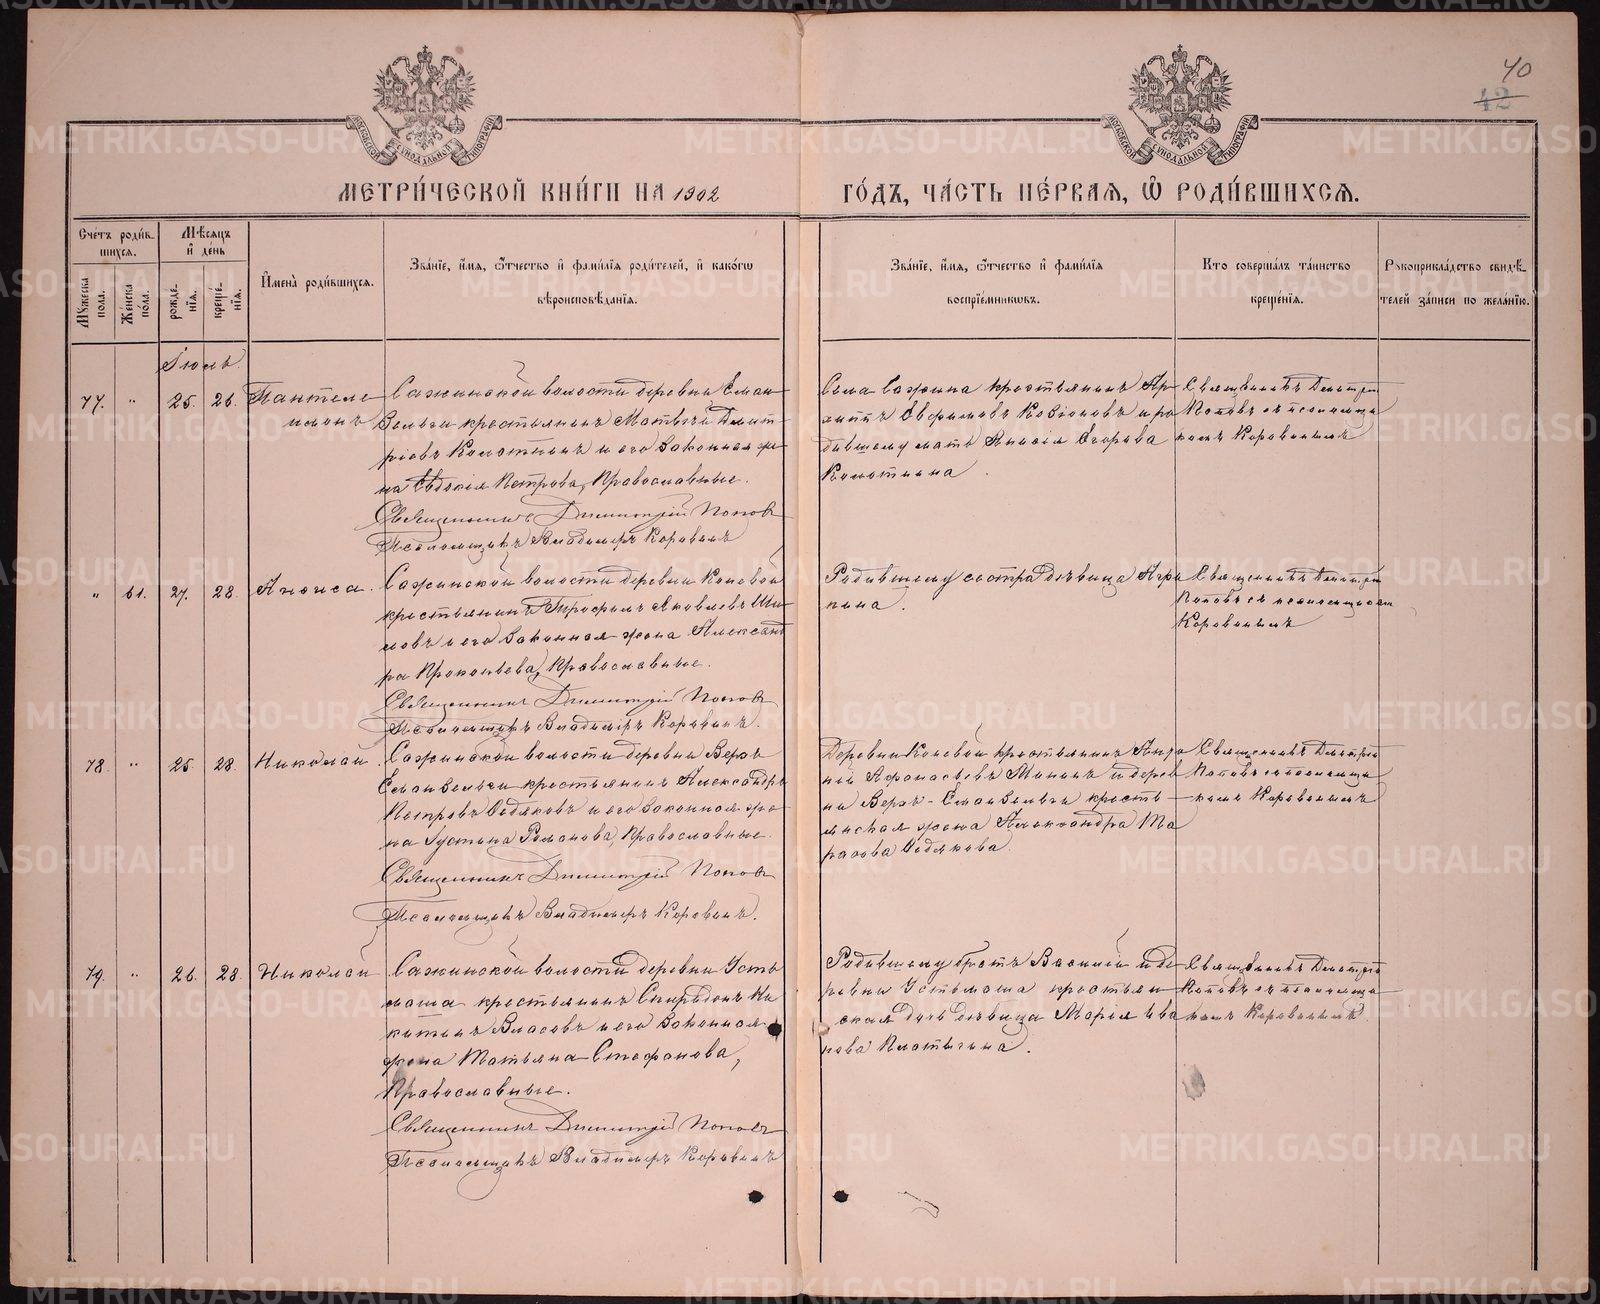 40
42
МЕТРИ́ЧЕСКОЙ КНИ́ГИ НА 1902
ГО́ДЪ, ЧА́СТЬ ПЕ́РВАЯ, Ѡ РОДИ́ВШИХСЯ.
Сче́тъ роди́в-
шихся.
Мꙋ́жеска
по́ла.
Же́нска
по́ла.
Мѣ́сяцъ
и де́нь
рожде-
нія.
креще́-
нія.
Имена̀ роди́вшихся.
Зва́ніе, и́мя, ѻ́тчество и фами́лія роди́телей, и како́гѡ
вѣроисповѣ́данія.
Зва́ніе, и́мя, ѻ́тчество и фами́лія
воспріе́мникѡвъ.
Кто соверша́лъ та́инство
креще́нія.
Рꙋкоприкла́дство свидѣ́-
телей за́писи по жела́нію.
Іюль.
77. " 25. 26. Пантеле
имонъ
Сажинской волости деревни Еман-
зельги крестьянинъ Матвѣй Дмит-
ріевъ Колотнинъ и его законная же-
на Евдокія Петрова, Православные.
Священникъ Димитрій Попов
Псаломщикъ Владимиръ Коровинъ
Села Сажина крестьянинъ Ар-
хиппъ Евфимовъ и ро
дившему мать Егорова
Священникъ Дмитрій
Поповъ съ псаломщи
комъ Коровинымъ
" 61. 27. 28. Анфиса.
Сажинской волости деревни Коневой
крестьянинъ Трофимъ Яковлевъ Ши-
ловъ и его законная жена Александ
ра Прокопьева, Православные.
Священник Димитрій Попов
Псаломщикъ Владимиръ Коровинъ.
Родившему сестра дѣвица Агри
пина.
Священникъ Дмитрій
Поповъ съ псаломщикомъ
Коровинымъ
78. " 25. 28. Николай.
Сажинской волости деревни Верхъ
Еманзельги крестьянинъ Александръ
Петровъ Ѳедяковъ и его законная же-
на Устина Романова, Православные.
Священникъ Димитрій Попов
Псаломщикъ Владимиръ Коровинъ.
Деревни Коневой крестьянинъ
Аѳанасьевъ Мининъ и дерев
ни Верхъ-Еманзельги кресть-
янская жена Александра Ма
Ѳедякова.
Священникъ Дмитрій
Поповъ съ псаломщи
комъ Коровинымъ
79. " 26. 28. Николай
Сажинской волости деревни Усть
маша крестьянинъ Спиридонъ Ни-
китинъ Власовъ и его законная
жена Татьяна Стефанова,
Православные.
Священникъ Димитрій Поповъ
Псаломщикъ Владимиръ Коровинъ
Родившему братъ Василій и де
ревни Устьмаша крестьян-
ская дочь дѣвица Марія Ива
нова Платыгина.
Священникъ Дмитрій
Поповъ съ псаломщи
комъ Коровинымъ